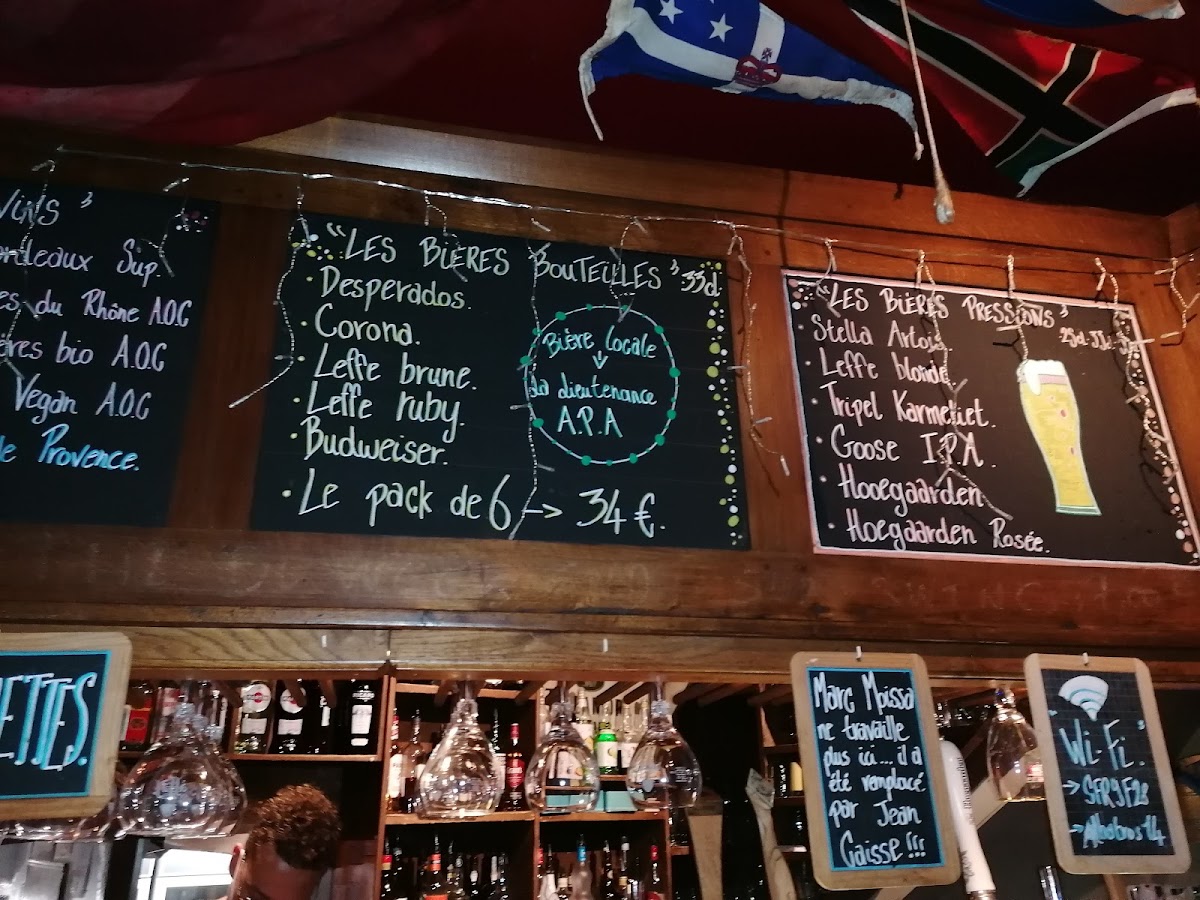 VINS"
Sup.
du Rhône A.O.C
bio A.O.C
Vegan A.O.C
de Provence.
"LES BIÈRES BOUTEILLES" 33cl.
• Desperados.
• Corona.
• Leffe brune.
• Leffe ruby.
• Budweiser.
• Le pack de 6 -> 34 €.
Bière locale
la dieutenance
A.P.A
"LES BIÈRES PRESSIONS"
• Stella Artois
• Leffe blonde
• Tripel Karmeliet.
• Goose I.P.A.
• Hooegaarden
• Hoegaarden Rosée.
ETTES.
Marc Moissa
ne travaille
plus ici... il a
été remplacé
par Jean
Caisse !!!
"Wi-Fi"